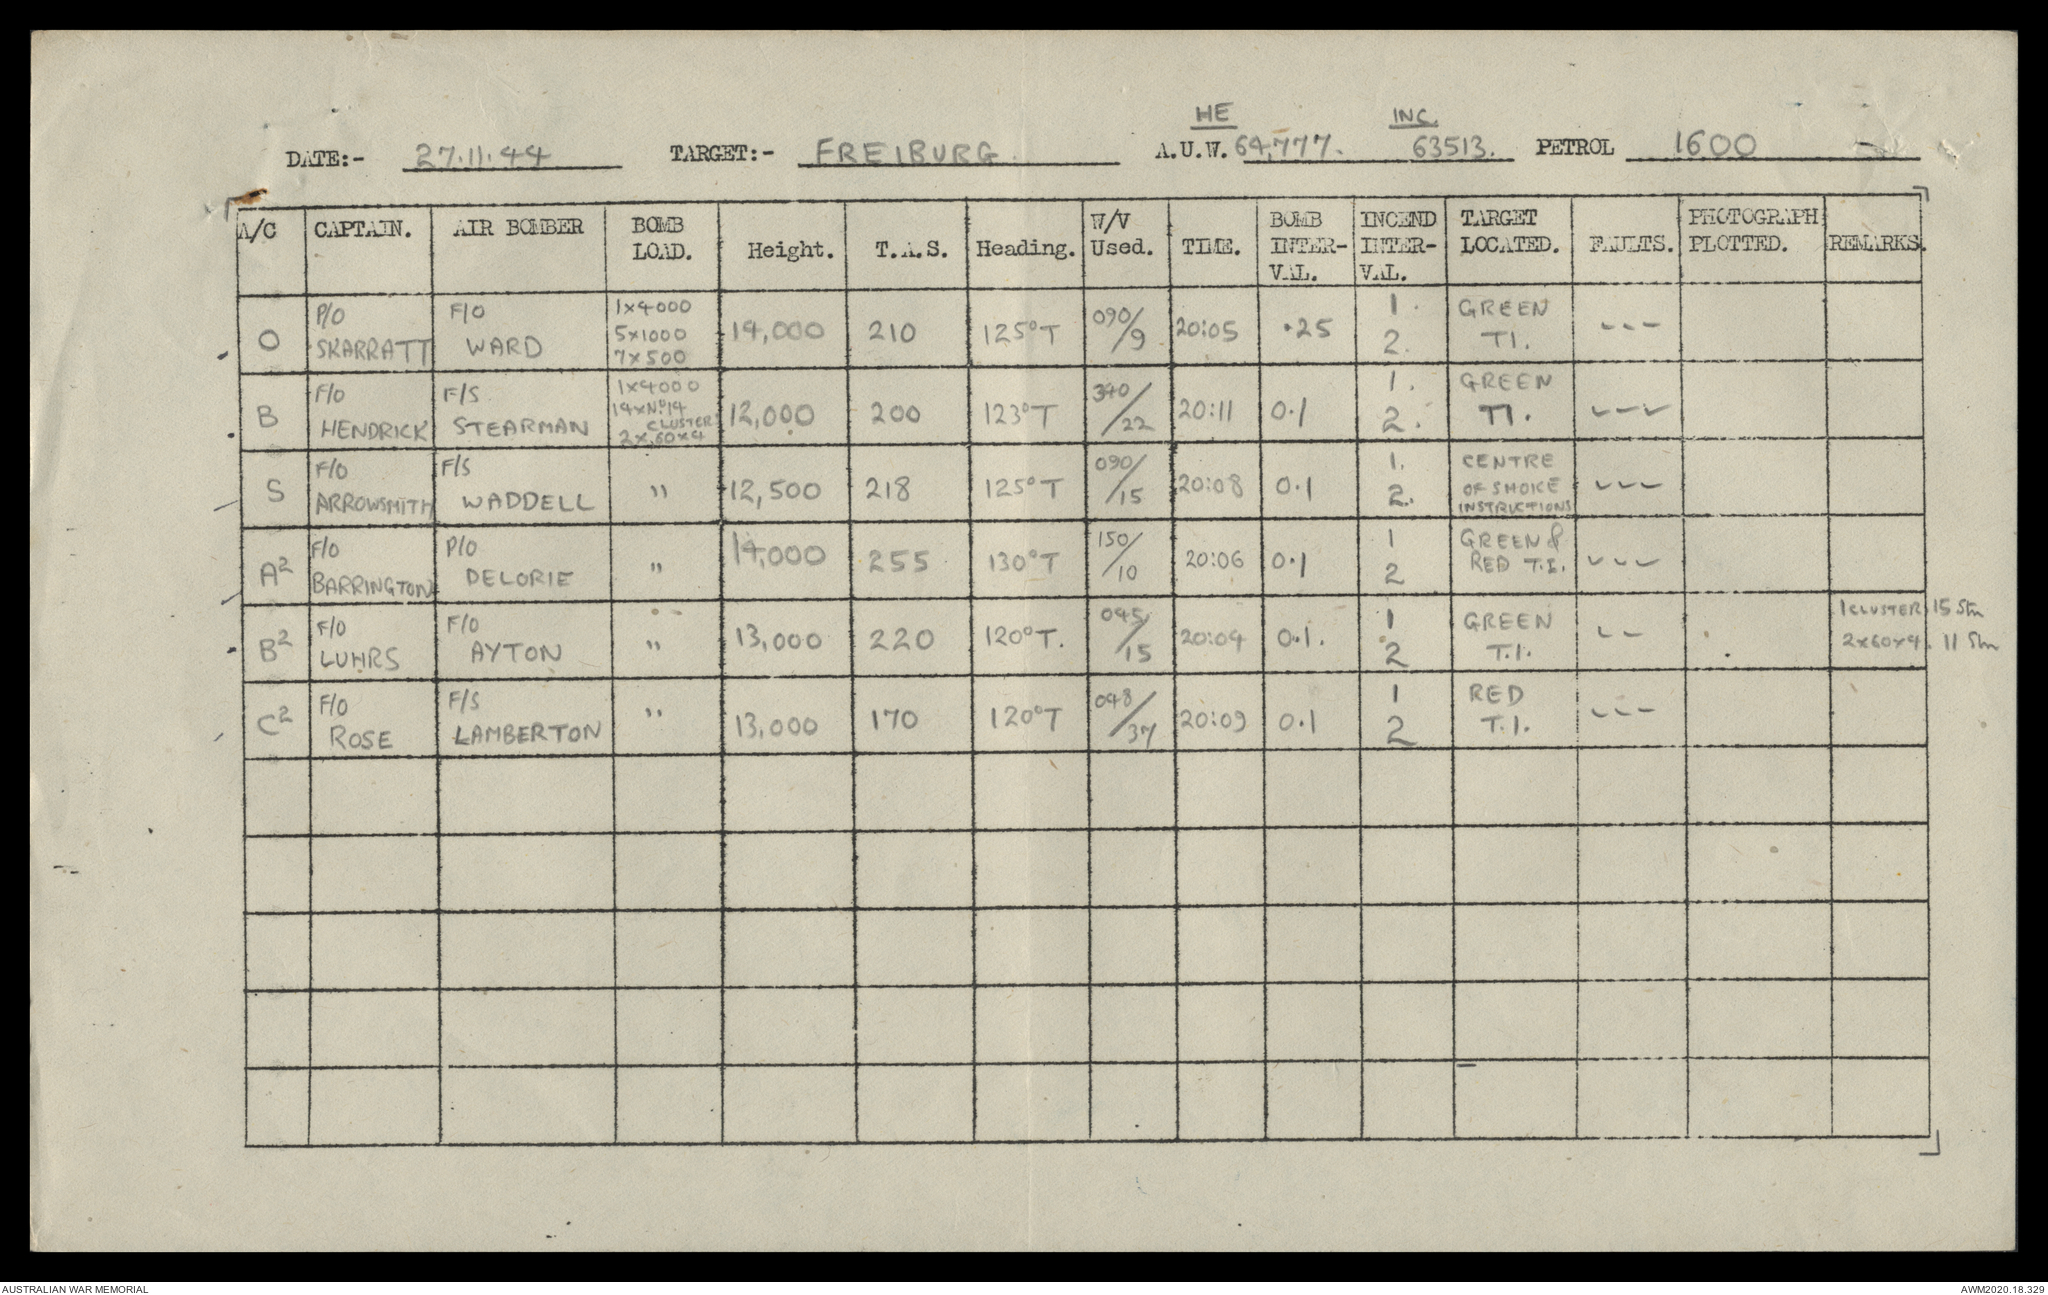 HE INC.
DATE:- 27.11.44 TARGET:- FREIBURG. A.U.W. 64,777. 63513. PETROL 1600
A/C CAPTAIN. AIR BOMBER BOMB LOAD. Height. T.A.S. Heading. W/V Used. TIME. BOMB INTER-VAL. INCEND INTER-VAL. TARGET LOCATED. FAULTS. PHOTOGRAPH PLOTTED. REMARKS.
O P/O SKARRATT F/O WARD 1x4000 5x1000 7x500 14,000 210 125°T 090/9 20:05 .25 1. 2. GREEN T.I. ---
B F/O HENDRICK F/S STEARMAN 1x4000 14xNo14 CLUSTER 2x60x4 12,000 200 123°T 340/22 20:11 0.1 1. 2. GREEN T.I. ---
S F/O ARROWSMITH F/S WADDELL " 12,500 218 125°T 090/15 20:08 0.1 1. 2. CENTRE OF SMOKE INSTRUCTIONS ---
A2 F/O BARRINGTON P/O DELORIE " 14,000 255 130°T 150/10 20:06 0.1 1 2 GREEN & RED T.I. ---
B2 F/O LUHRS F/O AYTON " 13,000 220 120°T. 045/15 20:04 0.1. 1 2 GREEN T.I. -- 1 CLUSTER 15 Stn 2x60x4. 11 Stn
C2 F/O ROSE F/S LAMBERTON " 13,000 170 120°T 048/37 20:09 0.1 1 2 RED T.I. ---
AUSTRALIAN WAR MEMORIAL AWM2020.18.329